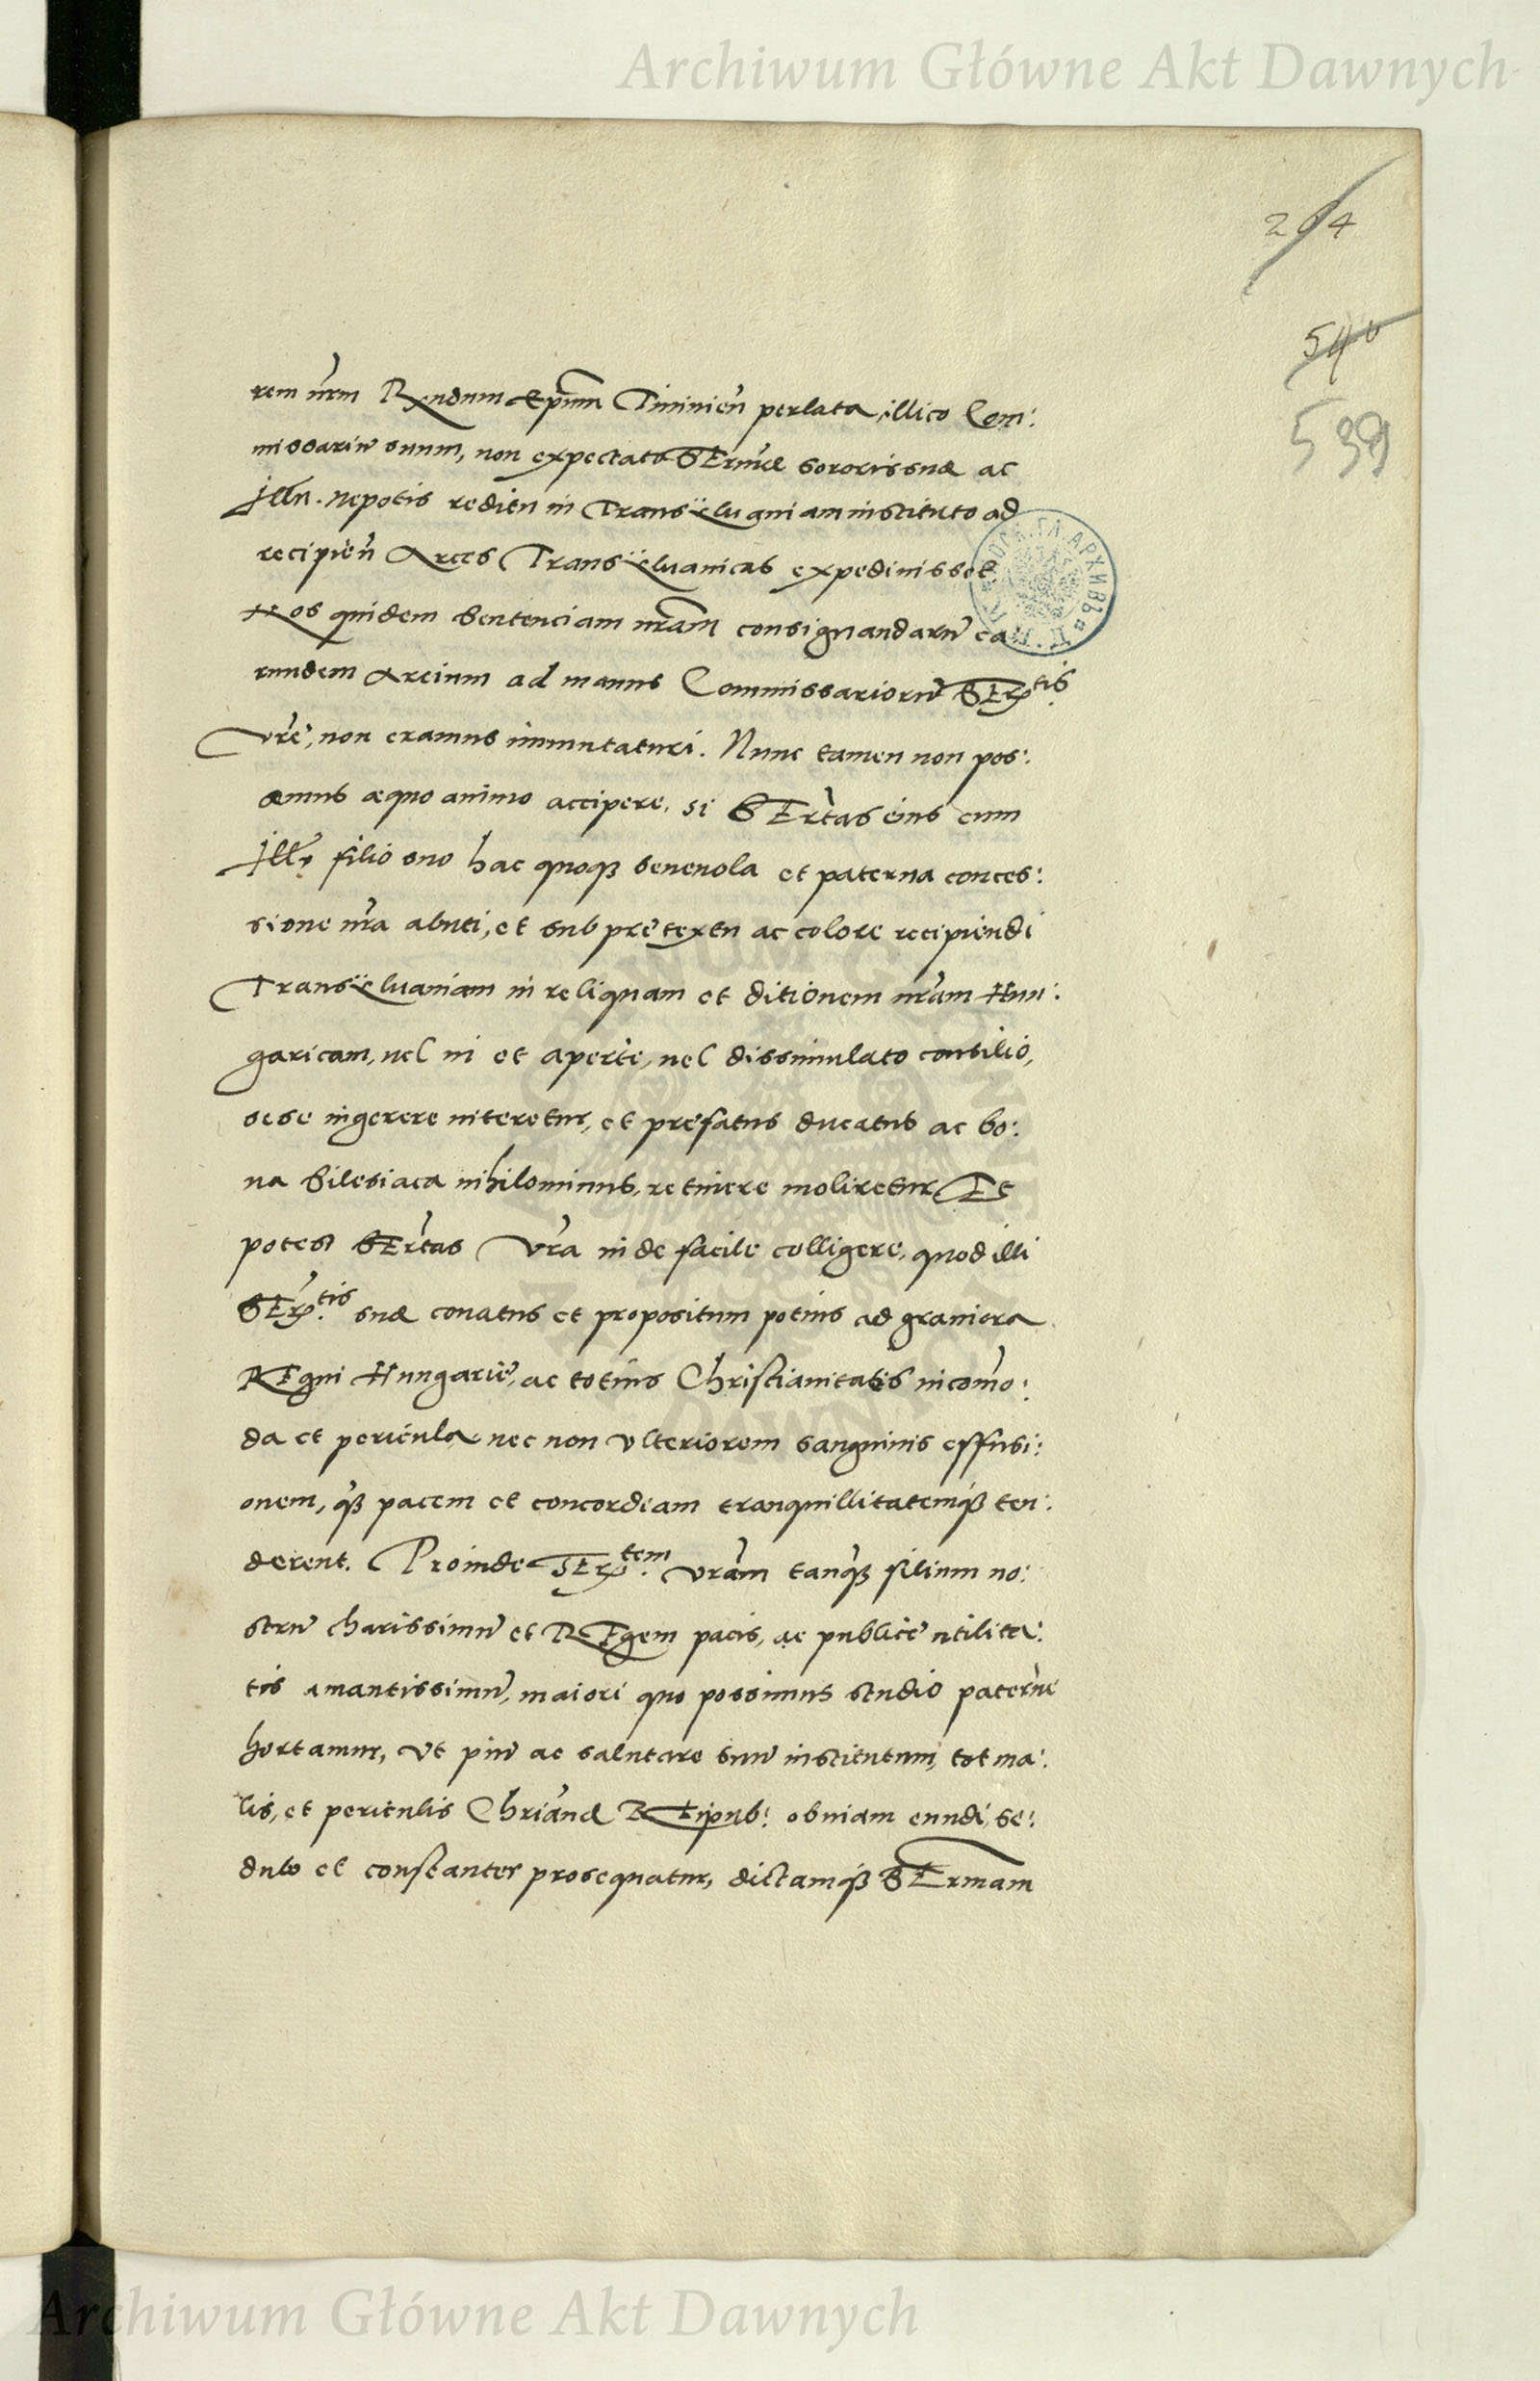 Archiwum Główne Akt Dawnych
204
540
539
rem nr̃m Rx̃ndum Ep̃um Tininień perlata, illico Com:
missariũ suum, non expectato SEr̃mæ sororis suæ ac
Jlln̄. Nepotis redień in Transÿluaniam instituto ad
recipień Arces Transÿluanicas expediuisset
Nos quidem sententiam nr̃am consignandarũ ea:
rundem Arcium ad manus Commissariorũ SErᵗⁱˢ.
Vr̃e, non eramus immutaturi. Nunc tamen non pos:
sumus æquo animo accipere, si SErt̃as eius cum
Jllr̄ filio suo hac quoqꝫ beneuola et paterna conces:
sione nr̃a abuti, et sub pretextu ac colore recipiendi
Transÿluaniam in reliquam et ditionem nr̃am Hun:
garicam, uel ui et aperte, uel dissimulato consilio,
sese ingerere niteretur, et prefatus ducatus ac bo:
na Silesiaca nihilominus, retinere moliretur Et
potest SErt̃as Vr̃a inde facile colligere, quod illi
SErᵗⁱˢ. suæ conatus et propositum potius ad grauiora
REgni Hungarie, ac totius Christianitatis incom̃o:
da et pericula nec non vlteriorem sanguinis effusi:
onem, q̃ꝫ pacem et concordiam tranquillitatemqꝫ ten:
derent. Proinde SErᵗᵉᵐ. vr̃am tanq̃ꝫ filium no:
strũ charissimũ et REgem pacis, ac publice utilita:
tis amantissimũ, maiori quo possimus studio paterne
hortamur, Vt piũ ac salutare suũ institutum, tot ma:
lis, et periculis Chrĩanæ REipub: obuiam eundi, se:
dulo et constanter prosequatur, dictamqꝫ SErmam
Archiwum Główne Akt Dawnych